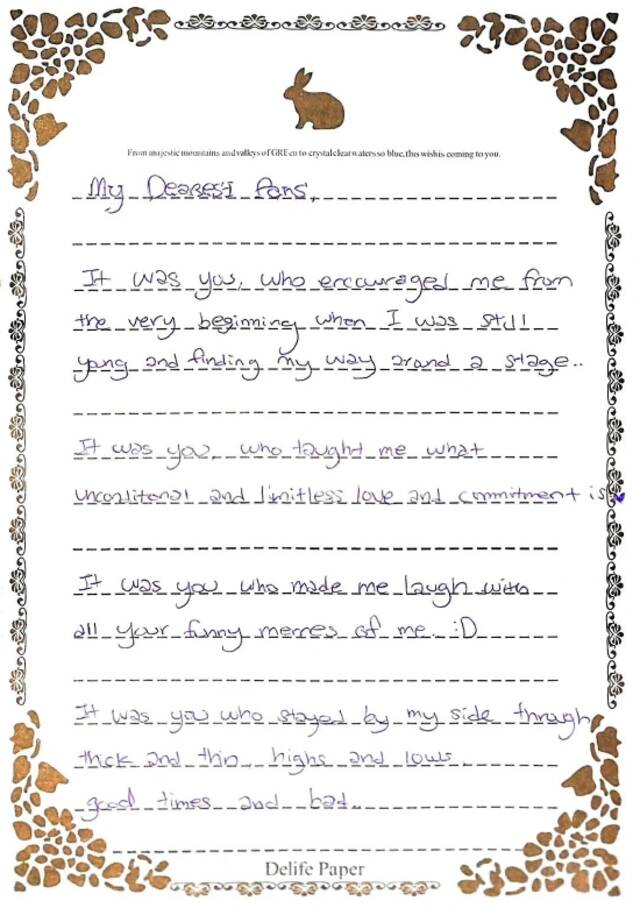 From majestic mountains and valleys of GREen to crystal clear waters so blue, this wish is coming to you.
My Dearest fans,
It was you, who encouraged me from
the very beginning when I was still
yong and finding my way arond a stage..
It was you, who taught me what
unconditonal and limitless love and commitment is
It was you who made me laugh with
all your funny memes of me. :D
It was you who stayed by my side through
thick and thin, highs and lows,
good times and bad..
Delife Paper